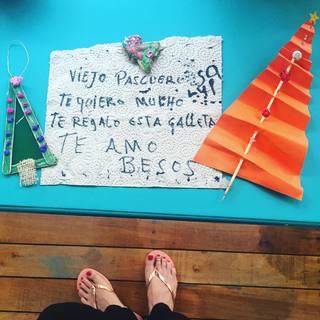 VIEJO PASCUERO
TE QUIERO MUCHO
TE REGALO ESTA GALLETA
TE AMO
BESOS